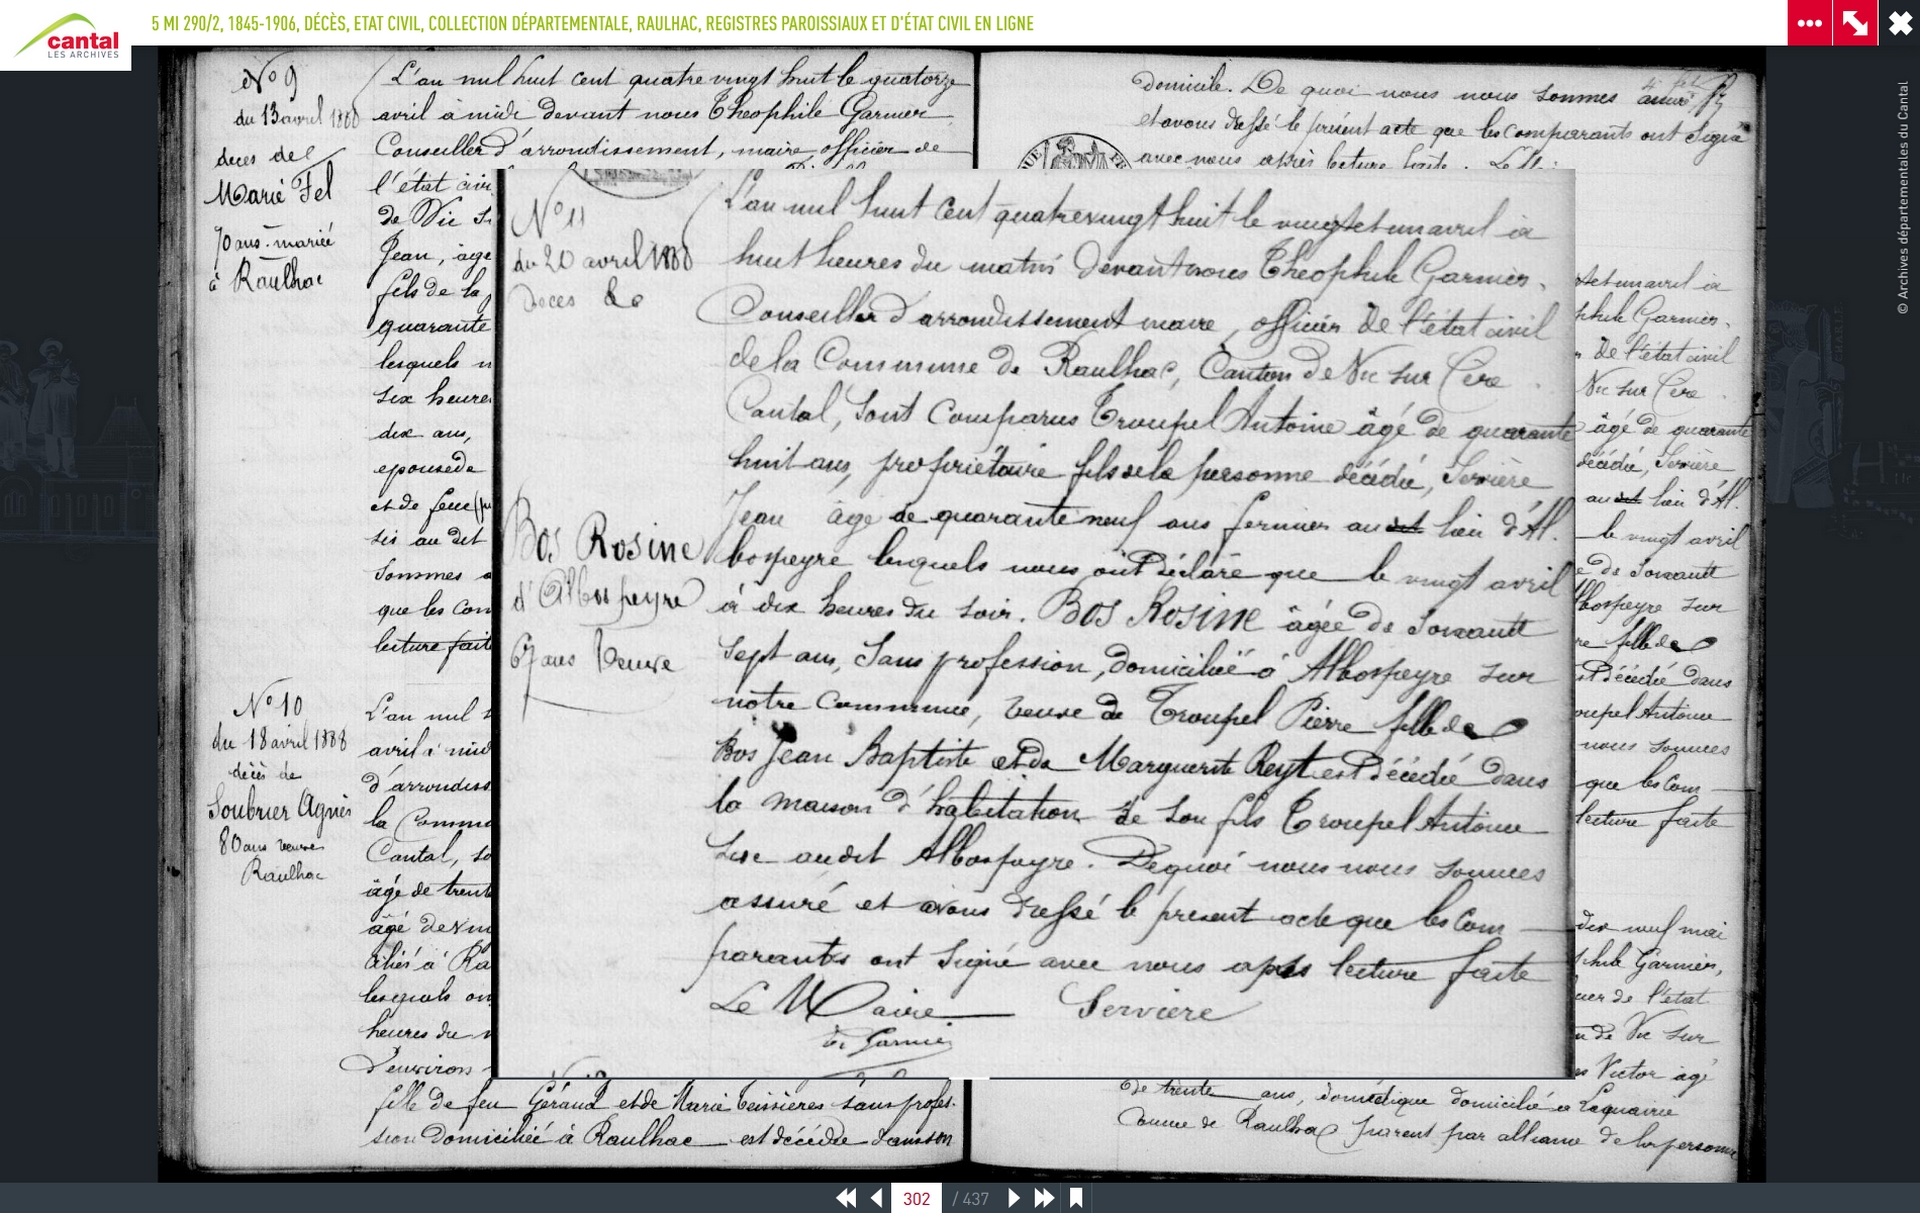 cantal
LES ARCHIVES
5 MI 290/2, 1845-1906, DÉCÈS, ETAT CIVIL, COLLECTION DÉPARTEMENTALE, RAULHAC, REGISTRES PAROISSIAUX ET D'ÉTAT CIVIL EN LIGNE
N° 9
du 13 avril 1888
deces de
Marie Fel
70 ans mariée
à Raulhac
L'an mil huit cent quatre vingt huit le quatorze
avril à midi devant nous Theophile Garnier
Conseiller d'arrondissement, maire officier de
l'état civi
de Vic s
Jean, age
fils de la
quarante
lesquels n
six heure
dix ans,
epouse de
et de feu
sis au dit
Sommes a
que les Con
lecture fait
N° 10
du 18 avril 1888
décès de
Soubrier Agnès
80 ans veuve
Raulhac
L'an mil
avril à mid
d'arrondiss
la Commu
Cantal, so
âgé de trent
âgé de
ciliés à Ra
lesquels on
heures du
D'environ
fille de feu Géraud et de Marie Teissières sans profes-
sion Domiciliée à Raulhac est décédée dans son
domicile. De quoi nous nous sommes assuré
et avons dressé le présent acte que les comparants ont signé
avec nous après lecture faite. Le
N° 11
du 20 avril 1888
Deces de
Bos Rosine
d'Albospeyre
67 ans Veuve
L'an mil huit cent quatrevingt huit le vingt et un avril à
huit heures du matin devant nous Theophile Garnier,
Conseiller d'arrondissement maire, officier de l'état civil
de la Commune de Raulhac, Canton de Vic sur Cère
Cantal, sont comparus Troupel Antoine âgé de quarante
huit ans, proprietaire fils de la personne décédée, Servière
Jean âgé de quarante neuf ans fermier au dit lieu d'Al.
bospeyre lesquels nous ont déclaré que le vingt avril
à dix heures du soir. Bos Rosine âgée de soixante
sept ans, sans profession, domiciliée à Albospeyre sur
notre Commune, veuve de Troupel Pierre fille de
Bos Jean Baptiste et de Marguerite Reyt est décédée dans
la maison d'habitation de son fils Troupel Antoine
sise audit Albospeyre. De quoi nous nous sommes
assuré et avons dressé le présent acte que les Com
parants ont signé avec nous après lecture faite
Le Maire Serviere
T. Garnier
et un avril à
phile Garnier,
de l'état civil
Vic sur Cère
âgé de quarante
décédée, Servière
au dit lieu d'Al.
le vingt avril
de soixante
lbospeyre sur
re fille de
est Décédée dans
oupel Antoine
nous sommes
que les Com
lecture faite
dix neuf mai
phile Garnier,
cier de l'état
n de Vic sur
Victor agé
de trente ans, domestique domicilié a Laquairie
Comune de Raulhac parent par alliance de la personne
© Archives départementales du Cantal
302 / 437